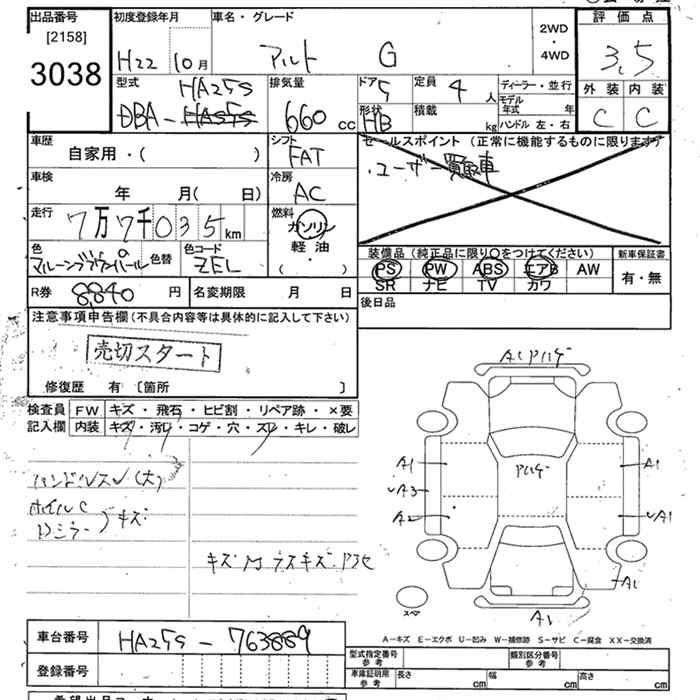 出品番号
[2158]
3038
初度登録年月
H22 10月
車名・グレード
アルト G
2WD
・
4WD
評価点
3.5
外装 内装
C C
型式
HA25S
DBA-HA25S
排気量
660 cc
ドア 5
形状 HB
定員 4 人
積載 kg
ディーラー・並行
モデル年式 年
ハンドル 左・右
車歴
自家用・( )
シフト
FAT
セールスポイント (正常に機能するものに限ります)
・ユーザー買取車
車検
年 月( 日)
冷房
AC
走行
7万7千035km
燃料
ガソリン
軽油
( )
色
マルーンブラウンパール
色替
色コード
ZEL
装備品 (純正品に限り○をつけてください)
PS PW ABS エアB AW
SR ナビ TV カワ
新車保証書
有・無
R券 8,840 円
名変期限 月 日
後日品
注意事項申告欄 (不具合内容等は具体的に記入して下さい)
売切スタート
修復歴 有 [箇所 ]
検査員 FW キズ・飛石・ヒビ割・リペア跡・×要
記入欄 内装 キズ・汚レ・コゲ・穴・スレ・キレ・破レ
ハンドルスレ(大)
ホイルC
Dミラー キズ
A1 Pハゲ
Pハゲ
A1 A1
A3
A2 A1
A1
スペア
A1
A-キズ E-エクボ U-凹み W-補修跡 S-サビ C-腐食 XX-交換済
車台番号
HA25S-763889
登録番号
型式指定番号 参考
類別区分番号 参考
車庫証明用 参考
長さ cm 幅 cm 高さ cm